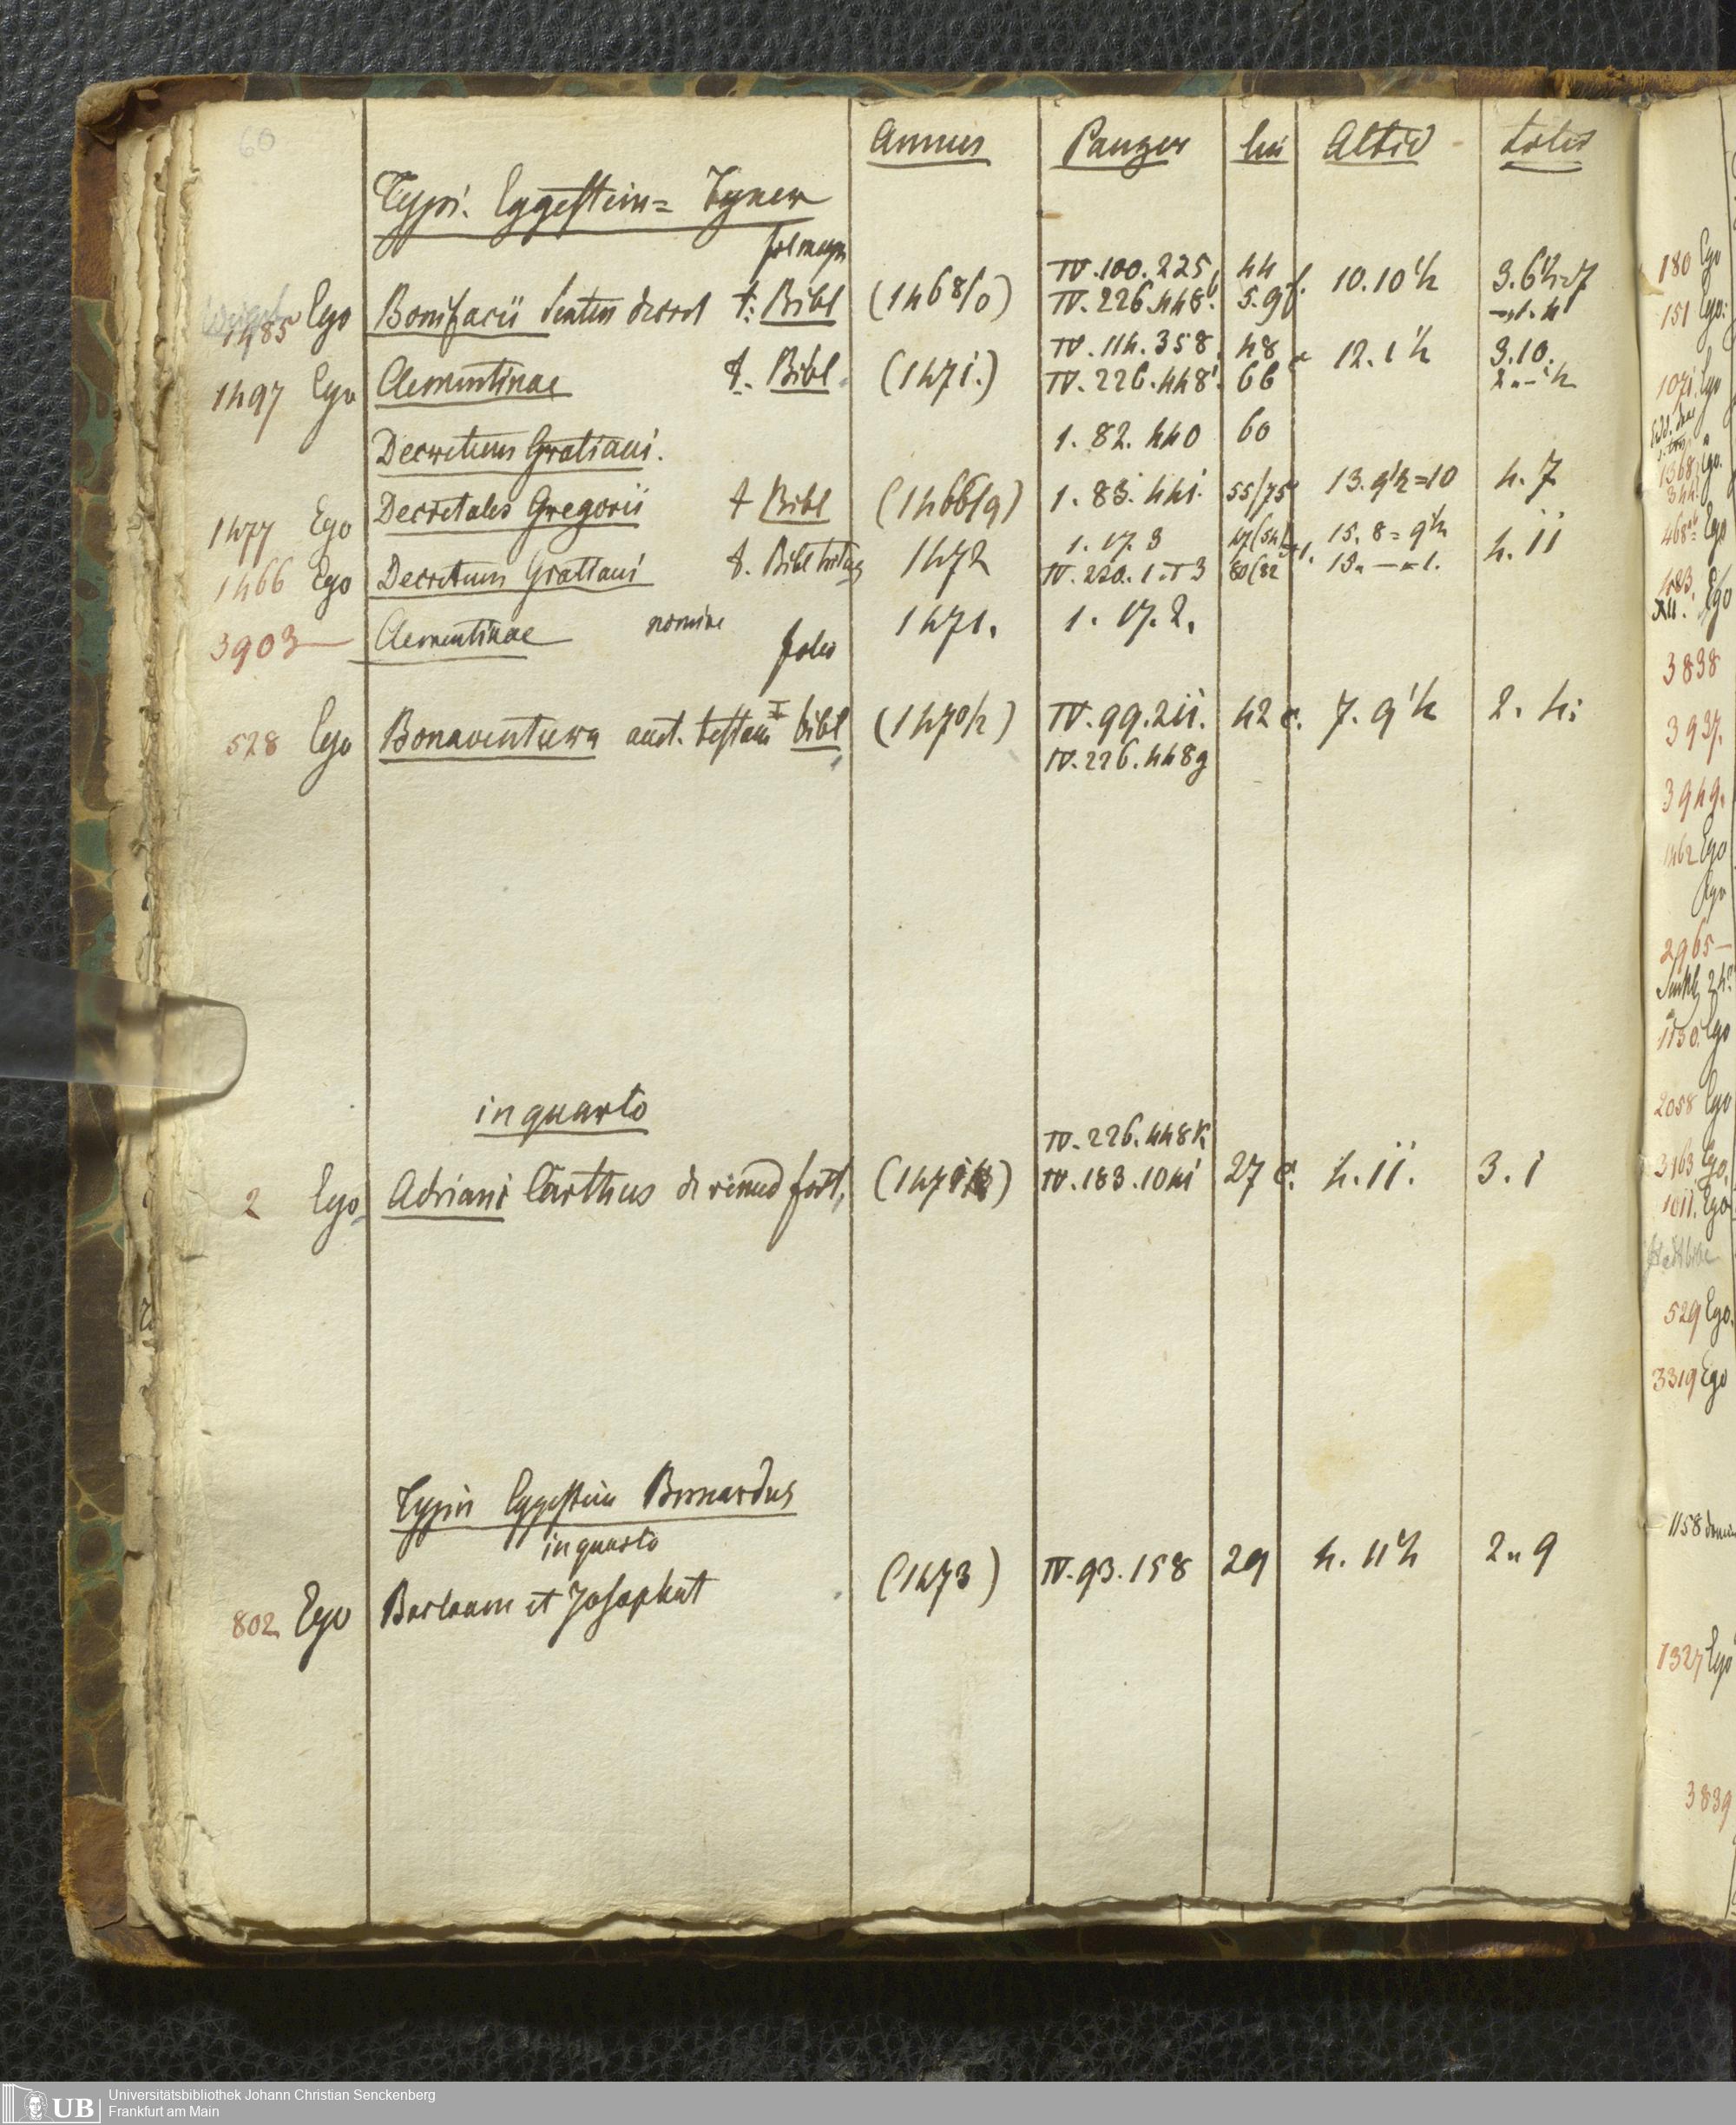 60
Annus Panzer lin Altid
Typi. Eggestein= Tyner
fol magn
IV. 100. 225. 44
1485 Ego Bonifacii decret t: Bibl (1468/0) IV. 226. 448b. 10. 10 1/2 3. 6 1/2=7
IV. 114. 358. 48
1497 Ego Clementinae t. Bibl. (1471.) IV. 226. 448i. 66 12. 1 1/2 3. 10.
Decretum Gratiani. 1. 82. 440 60
1477 Ego Decretales Gregorii t Bibl (1466/9) 1. 83. 441. 55/75 13. 9 1/2=10 4. 7
1. 17. 3 15. 8 = 9 1/2
1466 Ego Decretum Gratiani t. Bibl 1472 IV. 220. 1. 3 80/82 4. 11
3903 Clementinae nomine 1471. 1. 17. 2.
folio
528 Ego Bonaventura auct. testam bibl (1470/2) IV. 99. 211. 42 c. 7. 9 1/2 2. 4:
IV. 226. 448g
in quarto
IV. 226. 448k
2 Ego Adriani Carthus de remed fort, IV. 183. 1041 27 c. 4. 11. 3. 1
Typis Eggestein Bernardus
in quarto
802 Ego Barlaam et Josaphat (1473) IV. 93. 158 29 4. 11 1/2 2 " 9
180 Ego
151 Ego.
1071. Ego
1368. Ego.
468 Ego
Ego
3838
3937.
3949.
1462 Ego
Ego
2965 —
1130. Ego
2058 Ego
3163 Ego,
1011. Ego
529 Ego.
3319 Ego
1158
1327 Ego
3839
UB
Universitätsbibliothek Johann Christian Senckenberg
Frankfurt am Main